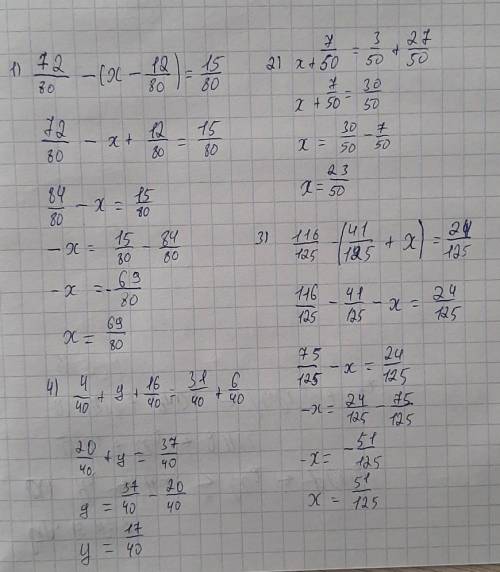 1) 72/80 - (x - 12/80) = 15/80
72/80 - x + 12/80 = 15/80
84/80 - x = 15/80
-x = 15/80 - 84/80
-x = -69/80
x = 69/80
2) x + 7/50 = 3/50 + 27/50
x + 7/50 = 30/50
x = 30/50 - 7/50
x = 23/50
3) 116/125 - (41/125 + x) = 24/125
116/125 - 41/125 - x = 24/125
75/125 - x = 24/125
-x = 24/125 - 75/125
-x = -51/125
x = 51/125
4) 4/40 + y + 16/40 = 31/40 + 6/40
20/40 + y = 37/40
y = 37/40 - 20/40
y = 17/40